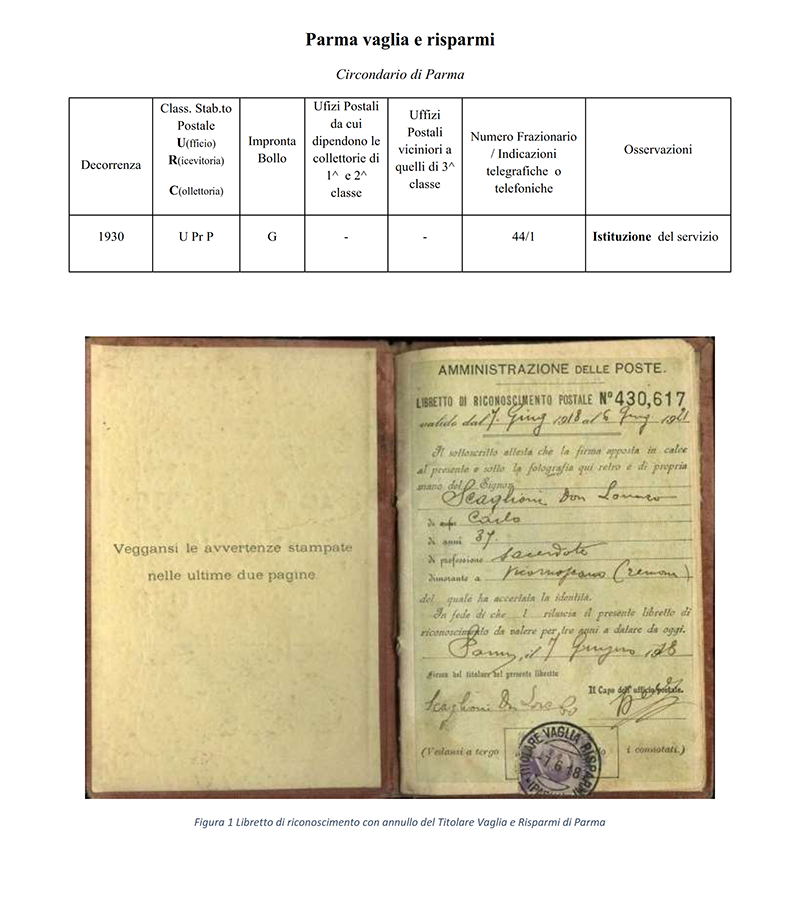 Parma vaglia e risparmi
Circondario di Parma
Decorrenza
Class. Stab.to
Postale
U(fficio)
R(icevitoria)
C(ollettoria)
Impronta
Bollo
Ufizi Postali
da cui
dipendono le
collettorie di
1^ e 2^
classe
Uffizi
Postali
viciniori a
quelli di 3^
classe
Numero Frazionario
/ Indicazioni
telegrafiche o
telefoniche
Osservazioni
1930
U Pr P
G
-
-
44/1
Istituzione del servizio
Veggansi le avvertenze stampate
nelle ultime due pagine
AMMINISTRAZIONE DELLE POSTE.
LIBRETTO DI RICONOSCIMENTO POSTALE Nº 430,617
valido dal 7. Giug 1918 al 6 Giug 1921
Il sottoscritto attesta che la firma apposta in calce
al presente e sotto la fotografia qui retro è di propria
mano del Signor
Scaglioni Don Lorenzo
di Carlo
di anni 37.
di professione sacerdote
dimorante a (Cremona)
del quale ha accertata la identità.
In fede di che rilascia il presente libretto di
riconoscimento da valere per tre anni a datare da oggi.
Parma, il 7 Giugno 1918
Firma del titolare del presente libretto
Il Capo dell'ufficio postale.
Scaglioni Don Lorenzo
(Vedansi a tergo i connotati.)
TITOLARE VAGLIA RISPARMI
7.6.18
PARMA
Figura 1 Libretto di riconoscimento con annullo del Titolare Vaglia e Risparmi di Parma